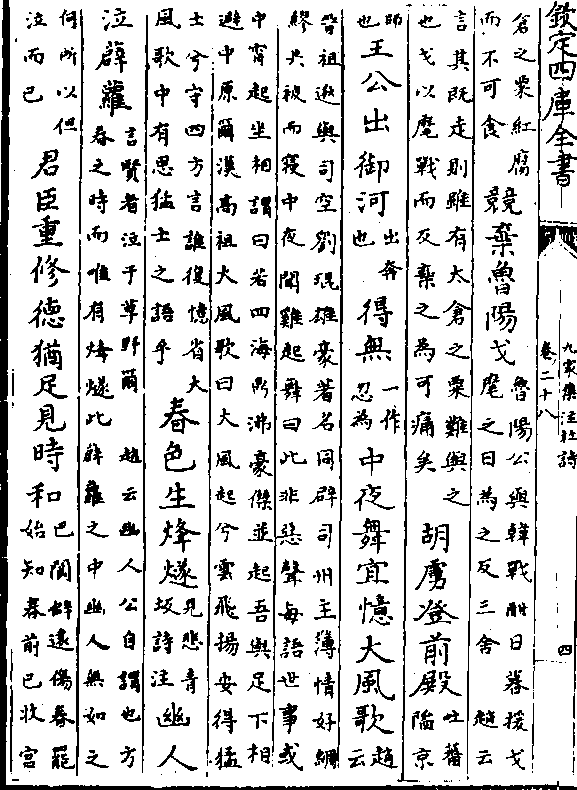 欽定四庫全書
九家集注杜詩
卷二十八
四
倉之粟紅腐
而不可食
競棄魯陽戈
魯陽公與韓戰酣日暮援戈
麾之日為之反三舍 趙云
言其既走則雖有太倉之粟難與之
也戈以麾戰而反棄之為可痛矣
胡虜登前殿
吐蕃
陷京
師
也
王公出御河
出奔
也
得無
一作
忍為
中夜舞宜憶大風歌
趙
云
晉祖逖與司空劉琨雄豪著名同辟司州主簿情好綢
繆共被而寢中夜聞雞起舞曰此非惡聲每語世事或
中宵起坐相謂曰若四海鼎沸豪傑並起吾與足下相
避中原爾漢高祖大風歌曰大風起兮雲飛揚安得猛
士兮守四方言誰復憶省大
風歌中有思猛士之語乎
春色生烽燧
見悲青
坂詩注
幽人
泣薜蘿
言賢者泣于草野爾 趙云幽人公自謂也方
春之時而唯有烽燧此薜蘿之中幽人無如之
何所以但
泣而已
君臣重修德猶足見時和
巴閬僻遠傷春罷
始知春前已收宮